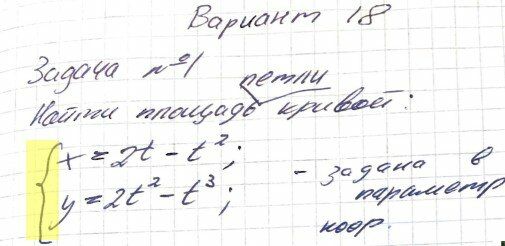 Вариант 18
Задача №1
петли
Найти площадь кривой:
x = 2t - t²;
y = 2t² - t³;
- задана в
параметр
коор.